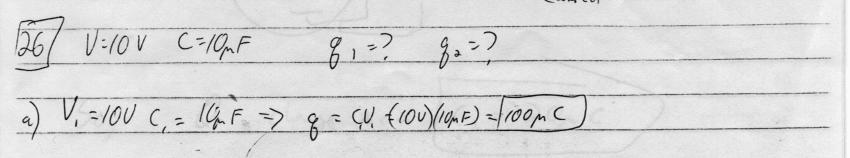 26 V=10V C=10μF q₁=? q₂=?
a) V₁=10V C₁=10μF => q = C₁V₁ = (10V)(10μF) = 100μC